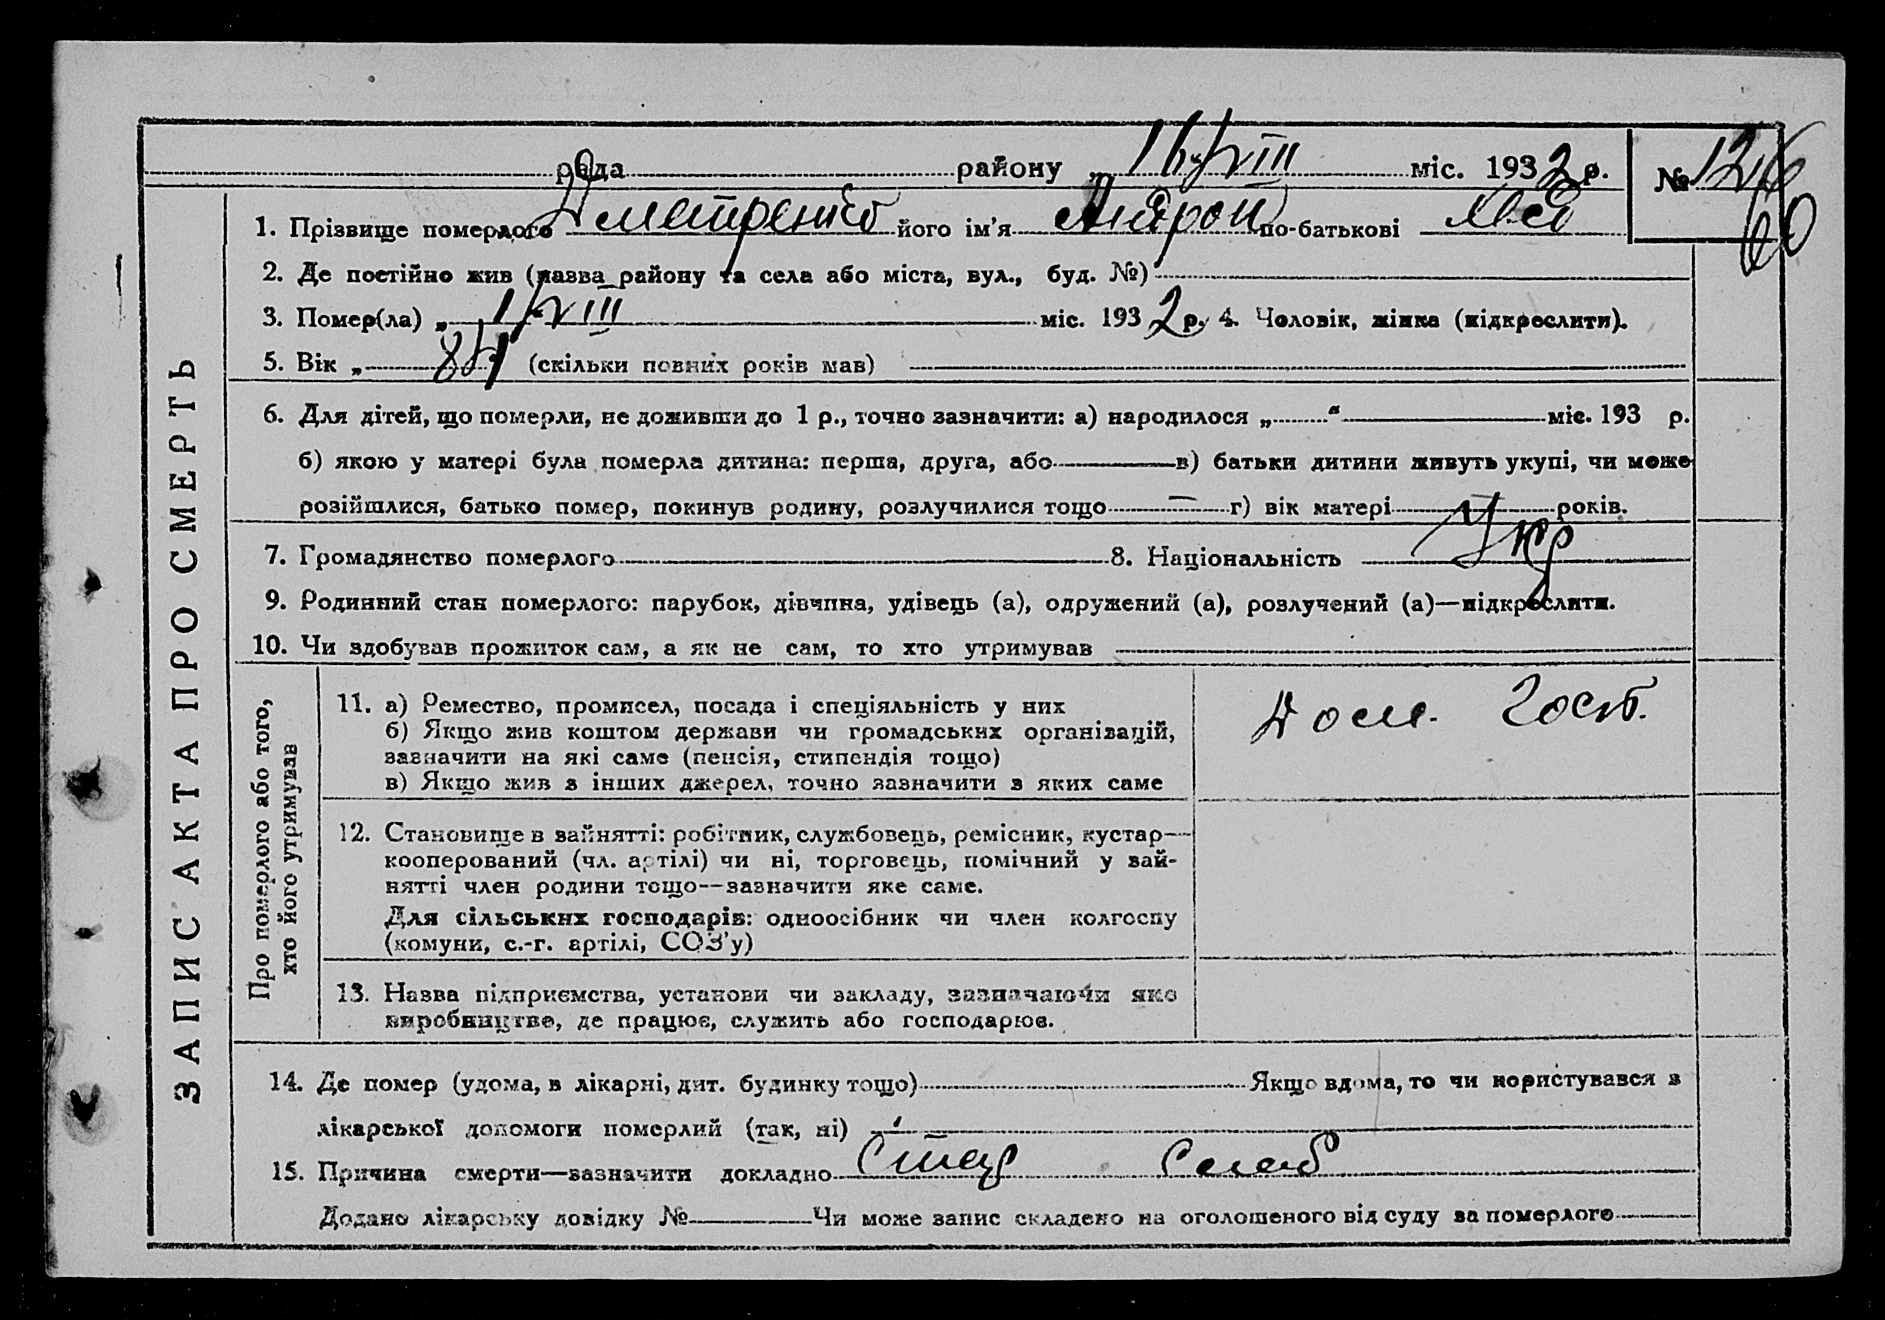 рада району „ 16/VIII міс. 1932 р. № 126
60
1. Прізвище померлого Дметренко його ім'я Андрон по-батькові
2. Де постійно жив (назва району та села або міста, вул., буд. №)
3. Помер(ла) „ 1/VIII міс. 1932 р. 4. Чоловік, жінка (підкреслити).
5. Вік „ (скільки повних років мав)
6. Для дітей, що померли, не доживши до 1 р., точно зазначити: а) народилося „ “ міс. 193 р.
б) якою у матері була померла дитина: перша, друга, або в) батьки дитини живуть укупі, чи може
розійшлися, батько помер, покинув родину, розлучилися тощо г) вік матері років.
7. Громадянство померлого 8. Національність Укр
9. Родинний стан померлого: парубок, дівчина, удівець (а), одружений (а), розлучений (а)—підкреслити.
10. Чи здобував прожиток сам, а як не сам, то хто утримував
ЗАПИС АКТА ПРО СМЕРТЬ
Про померлого або того,
хто його утримував
11. а) Ремество, промисел, посада і спеціяльність у них
б) Якщо жив коштом держави чи громадських організацій,
зазначити на які саме (пенсія, стипендія тощо)
в) Якщо жив з інших джерел, точно зазначити з яких саме
Дом. Госп.
12. Становище в зайнятті: робітник, службовець, ремісник, кустар—
кооперований (чл. артілі) чи ні, торговець, помічний у зай-
нятті член родини тощо—зазначити яке саме.
Для сільських господарів: одноосібник чи член колгоспу
(комуни, с.-г. артілі, СОЗ'у)
13. Назва підприємства, установи чи закладу, зазначаючи яке
виробництво, де працює, служить або господарює.
14. Де помер (удома, в лікарні, дит. будинку тощо) Якщо вдома, то чи користувався з
лікарської допомоги померлий (так, ні)
15. Причина смерти—зазначити докладно Стар Слаб
Додано лікарську довідку № Чи може запис складено на оголошеного від суду за померлого